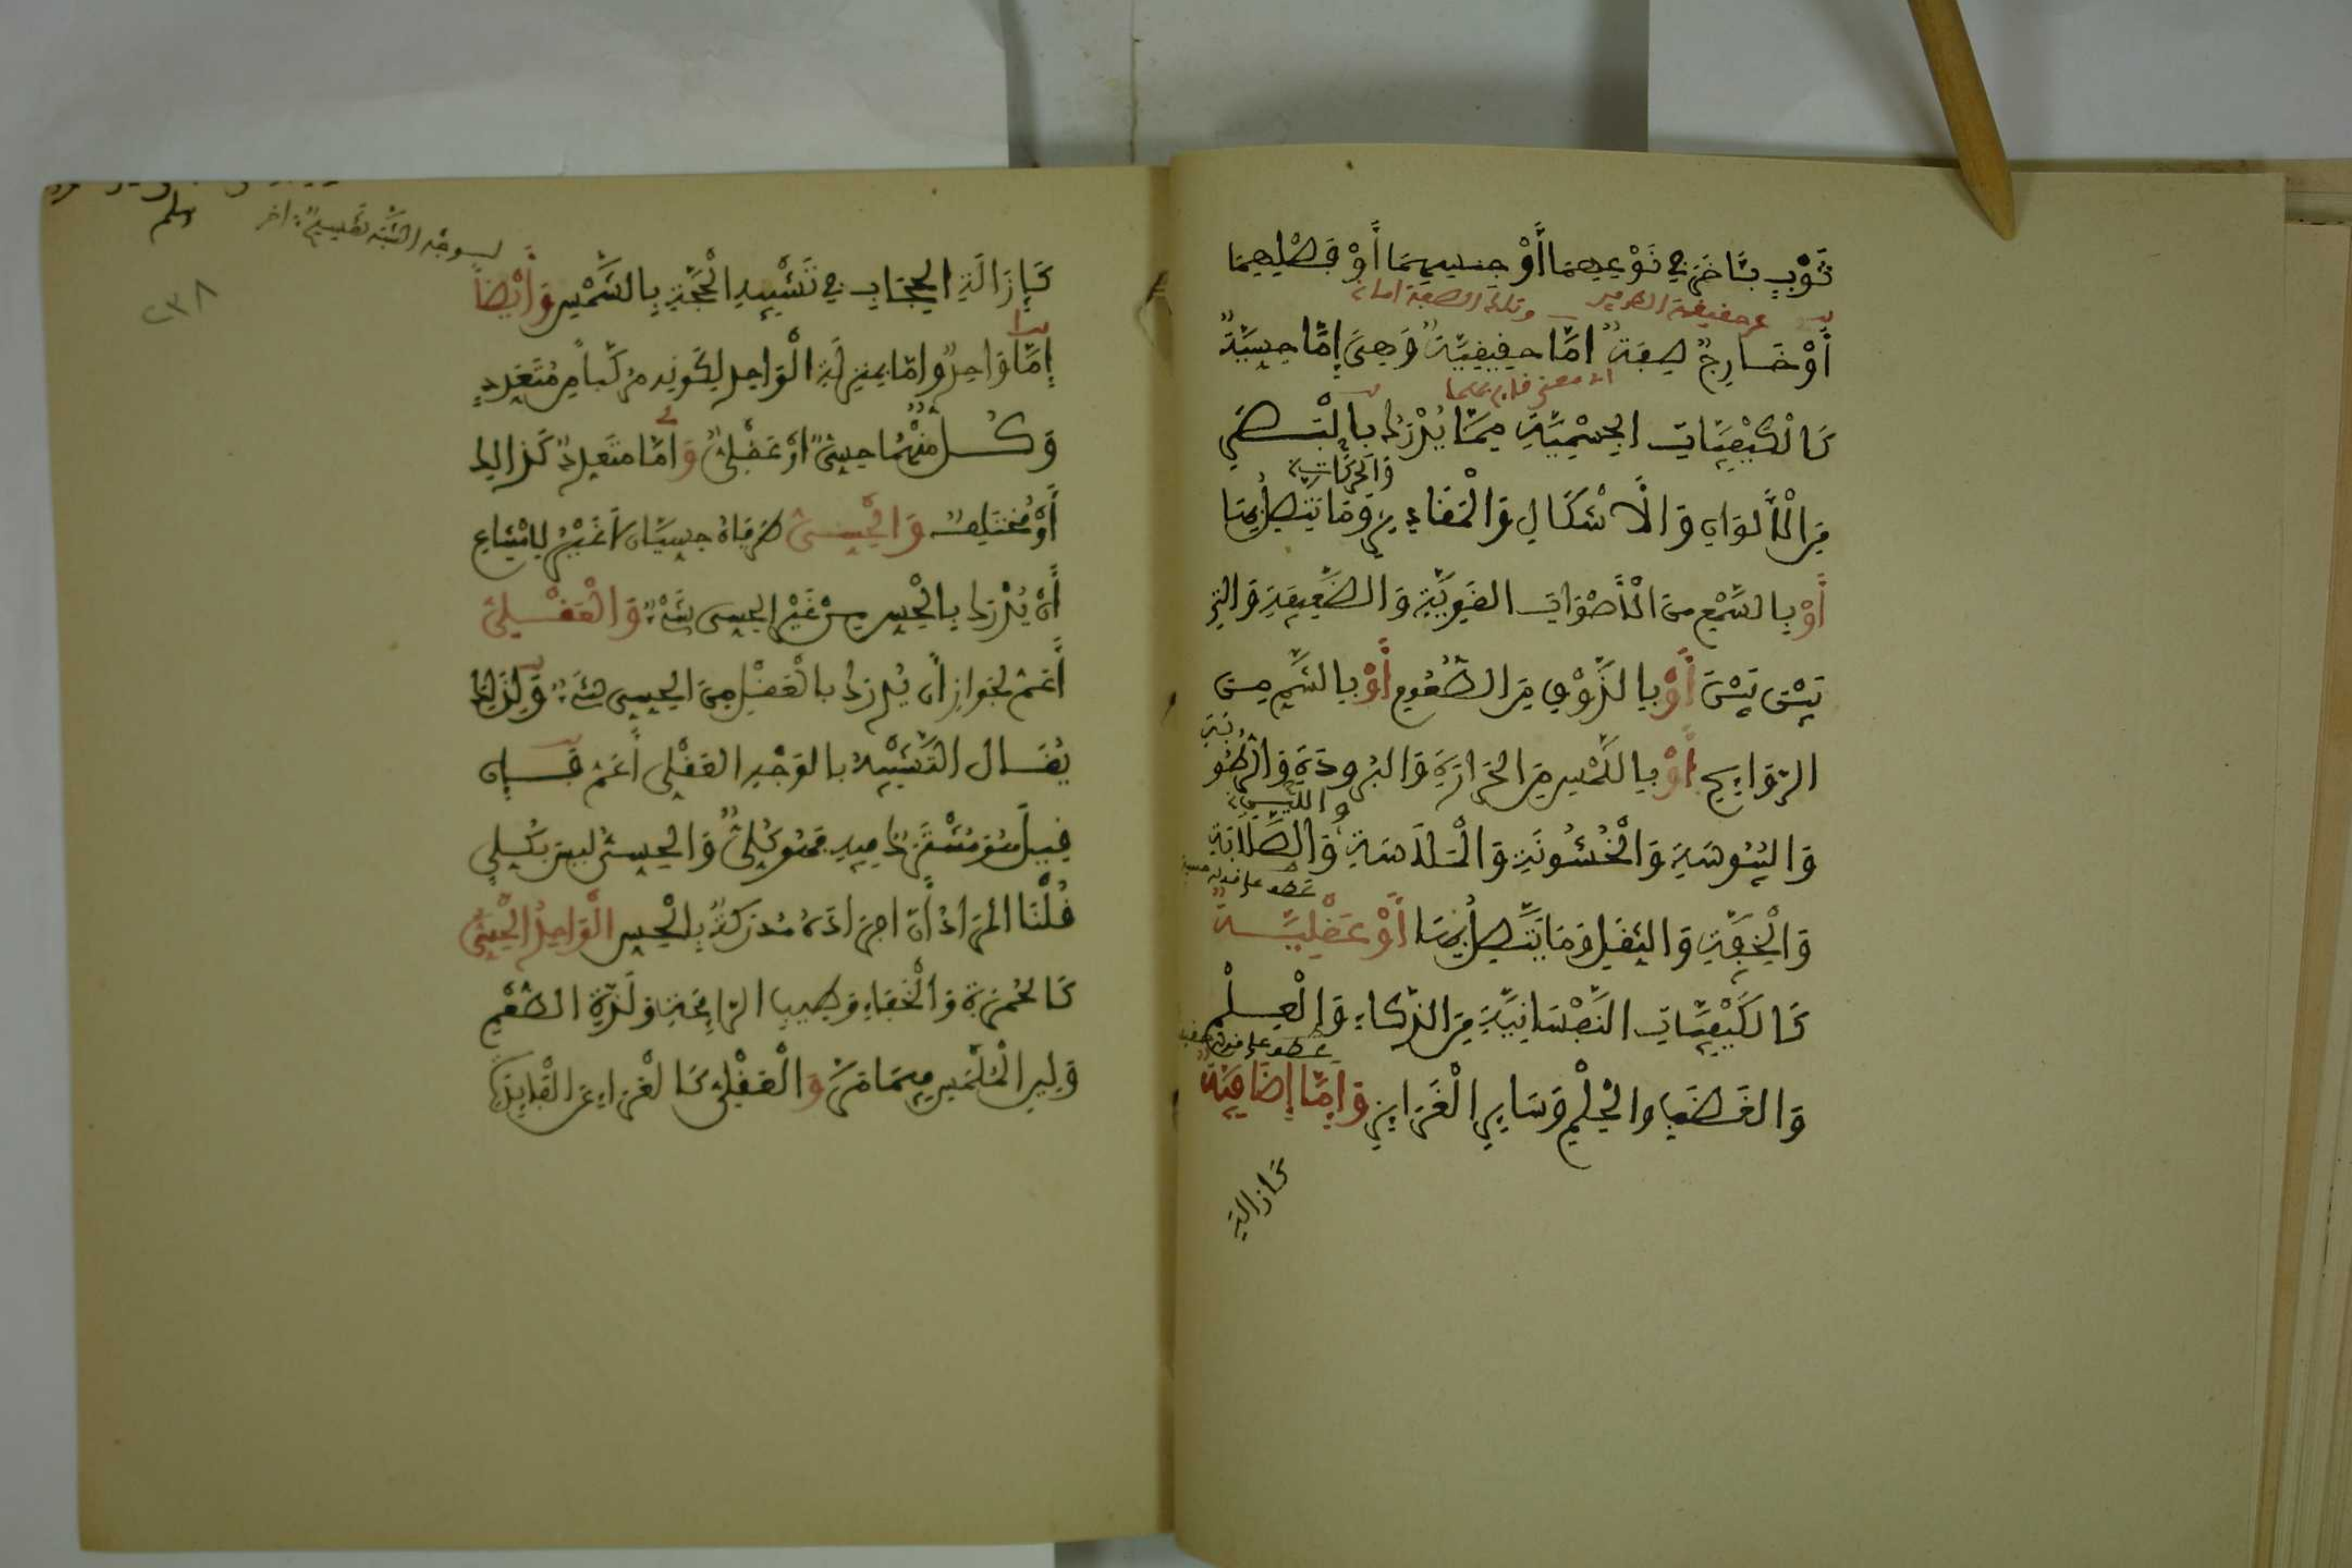 ثَوْبٍ بِـَٔاخَرَ فِي نَوْعِهِمَا أَوْ جِنْسِهِمَا أَوْ فَصْلِهِمَا
عن حقيقة الطرفين وتلك الصفة اما
أَوْ خَارِجٌ صِفَةٌ اِمَّا حَقِيقِيَّةٌ وَهِيَ إِمَّا حِسِّيَّةٌ
كَالْكَيْفِيَّاتِ الْجِسْمِيَّةِ مِمَّا يُدْرَكُ بِالْبَصَرِ
مِنَ الْأَلْوَانِ وَالْأَشْكَالِ وَالْمَقَادِيرِ وَمَا يَتَّصِلُ بِهَا
وَالْحَرَكَاتِ
أَوْ بِالسَّمْعِ مِنَ الْأَصْوَاتِ القَوِيَّةِ وَالضَّعِيفَةِ وَالتِي
بَيْنَ بَيْنَ أَوْ بِالذَّوْقِ مِنَ الطُّعُومِ أَوْ بِالشَّمِّ مِنَ
الرَّوَايِحِ أَوْ بِاللَّمْسِ مِنَ الحَرَارَةِ وَالبُرُودَةِ وَالرُّطُوبَةِ
وَاليُبُوسَةِ وَالْخُشُونَةِ وَالْمَلَاسَةِ وَاللِّينِ وَالصَّلَابَةِ
وَالْخِفَّةِ وَالثِّقَلِ وَمَا يَتَّصِلُ بِهَا أَوْ عَقْلِيَّةٌ
عطف على قوله حسية
كَالكَيْفِيَّاتِ النَّفْسَانِيَّةِ مِنَ الذَّكَاءِ وَالْعِلْمِ
وَالغَضَبِ وَالْحِلْمِ وَسَايِرِ الْغَرَايِزِ وَإِمَّا إِضَافِيَّةٌ
عطف على قوله
كَإِزَالَةِ
وسلم
لوجه الشبه تقسيم اخر
٢٣٨
كَإِزَالَةِ الحِجَابِ فِي تَشْبِيهِ الْحُجَّةِ بِالشَّمْسِ وَأَيْضًا
إِمَّا وَاحِدٌ وَإِمَّا بِمَنْزِلَةِ الْوَاحِدِ لِكَوْنِهِ مُرَكَّبًا مِنْ مُتَعَدِدٍ
وَكُلٌّ مِنْهُمَا حِسِّيٌّ أَوْ عَقْلِيٌّ وَإِمَّا مُتَعَدِدٌ كَذَالِكَ
أَوْ مُخْتَلِفٌ وَالْحِسِّيُّ طَرَفَاهُ حِسِّيَّانِ لَا غَيْرُ لِامْتِنَاعِ
أَنْ يُدْرَكَ بِالْحِسِّ مِنْ غَيْرِ الحِسِّيِ شَيْءٌ وَالْعَقْلِيُّ
أَعَمُّ لِجَوَازِ أَن يُدْرَكَ بِالْعَقْلِ مِنَ الحِسِّي شَيْءٌ وَلِذَلِكَ
يُقَالُ التَّشْبِيهُ بِالوَجْهِ العَقْلِي أَعَمُّ فَإِن
قِيلَ هُوَ مُشْتَرَكٌ فِيهِ فَهُوَ كُلِّيٌّ وَالحِسِّيُّ لَيْسَ بِكُلِّي
قُلْنَا المُرَادُ أَنَّ اَفْرَادَهُ مُدْرَكَةٌ بِالْحِسِّ الْوَاحِدُ الْحِسِّيُّ
كَالْحُمْرَةِ وَالْخَفَاءِ وَطِيبِ الرَّايِحَةِ وَلَذَّةِ الطَّعْمِ
وَلِينِ الْمَلْمَسِ فِيمَا مَرَّ وَالْعَقْلِيُّ كَالْعَرَاءِ عَنِ الْفَايِدَةِ